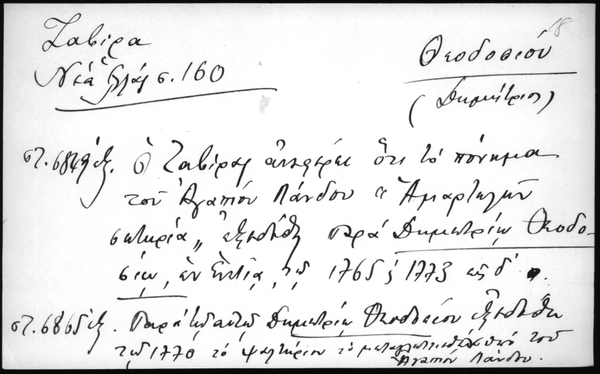 18
Ζαβίρα
Νέα Ἑλλάς σ. 160
Θεοδοσίου
(Δημήτριος)
στ. 6849 ἑξ. Ὁ Ζαβίρας ἀναφέρει ὅτι τὸ πόνημα
τοῦ Ἀγαπίου Λάνδου "Ἁμαρτωλῶν
σωτηρία" ἐξεδόθη παρὰ Δημητρίῳ Θεοδο-
σίῳ, ἐν Ἑνετίᾳ, τῷ 1765 ς 1773 εἰς δ'.
στ. 6865 ἑξ. Παρὰ τοῦ αὐτοῦ Δημητρίου Θεοδοσίου ἐξεδόθη
τῷ 1770 τὸ ψαλτήριον τὸ μεταγλωττισθὲν ὑπὸ τοῦ
Ἀγαπίου Λάνδου.